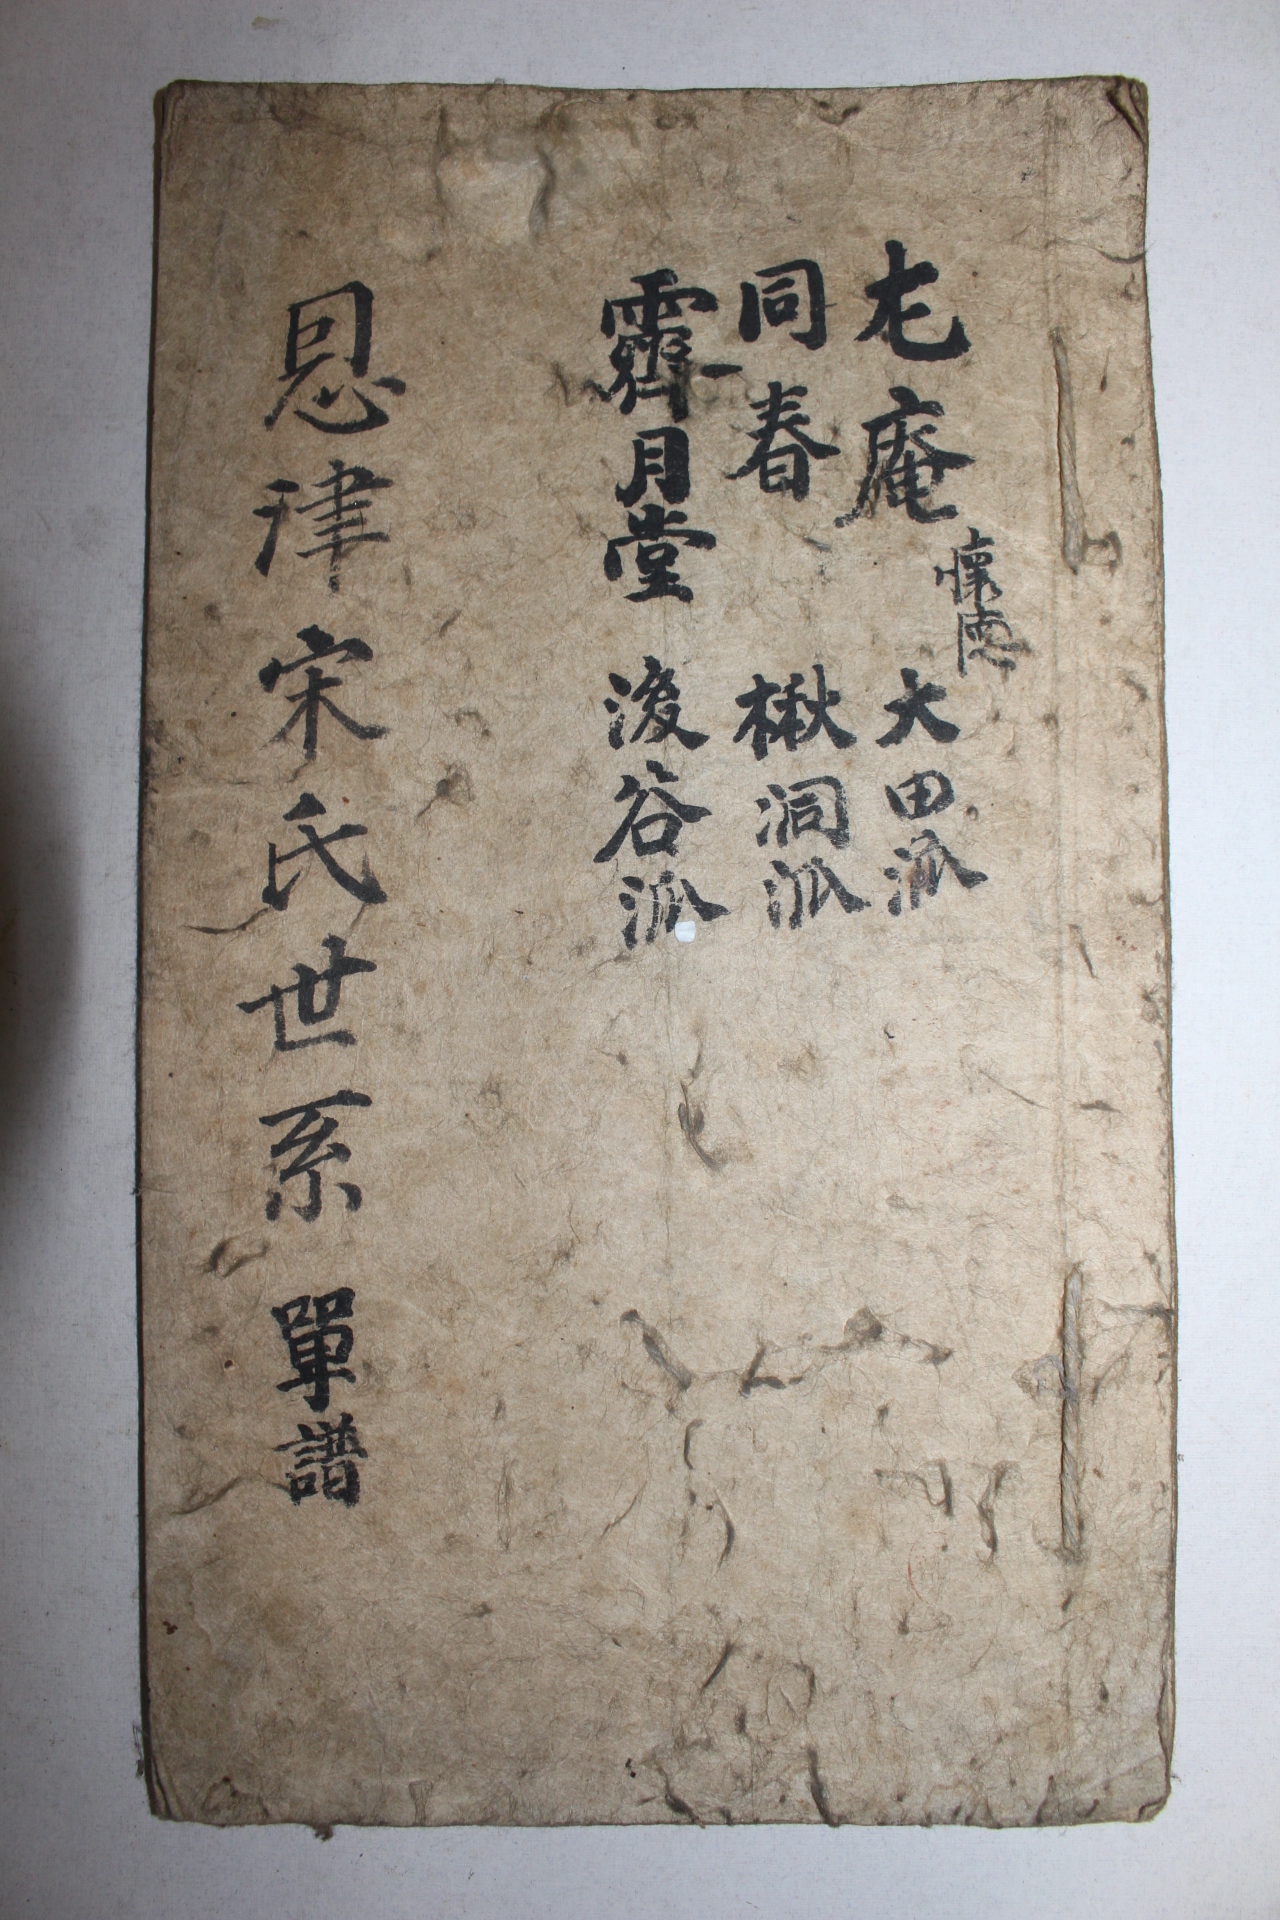 尤庵 懷德 大田派
同春 楸洞派
霽月堂 後谷派
恩津宋氏世系 單譜